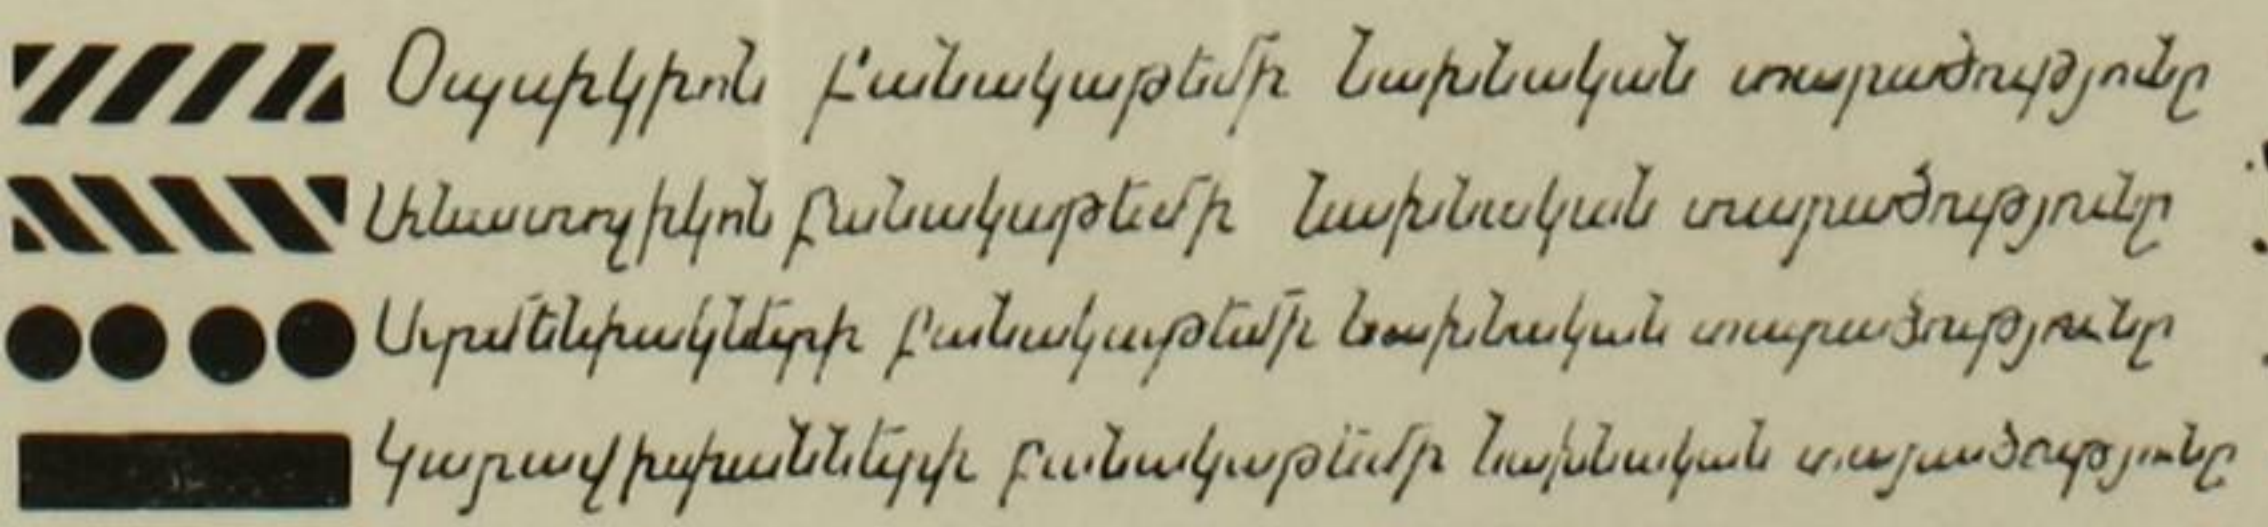 Օպսիկիոն բանակաթեմի նախնական տարածությունը
Անատոլիկոն բանակաթեմի նախնական տարածությունը
Արմենիակների բանակաթեմի նախնական տարածությունը
Կարավիսիանների բանակաթեմի նախնական տարածությունը